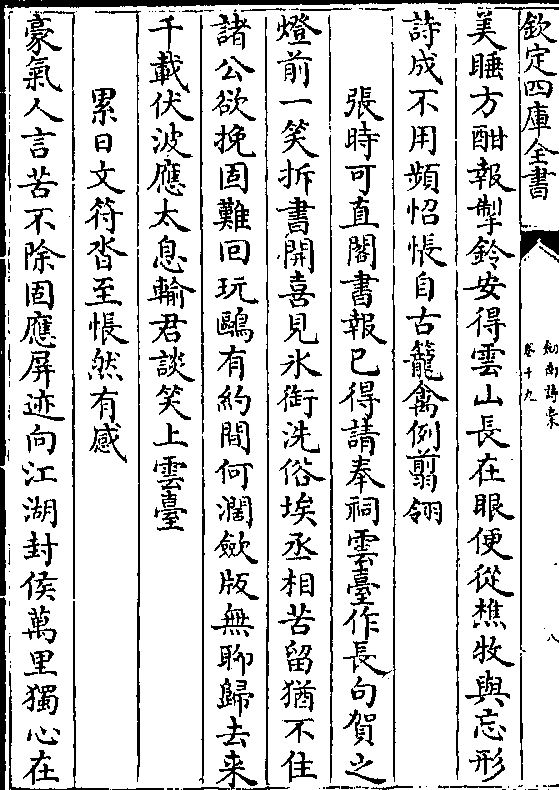 欽定四庫全書
劍南詩藁
卷十九
八
美睡方酣報掣鈴安得雲山長在眼便從樵牧與忘形
詩成不用頻惆悵自古籠禽例翦翎
張時可直閣書報已得請奉祠雲臺作長句賀之
燈前一笑拆書開喜見氷銜洗俗埃丞相苦留猶不住
諸公欲挽固難回玩鷗有約閒何濶斂版無聊歸去来
千載伏波應太息輸君談笑上雲臺
累日文符沓至悵然有感
豪氣人言苦不除固應屏迹向江湖封侯萬里獨心在